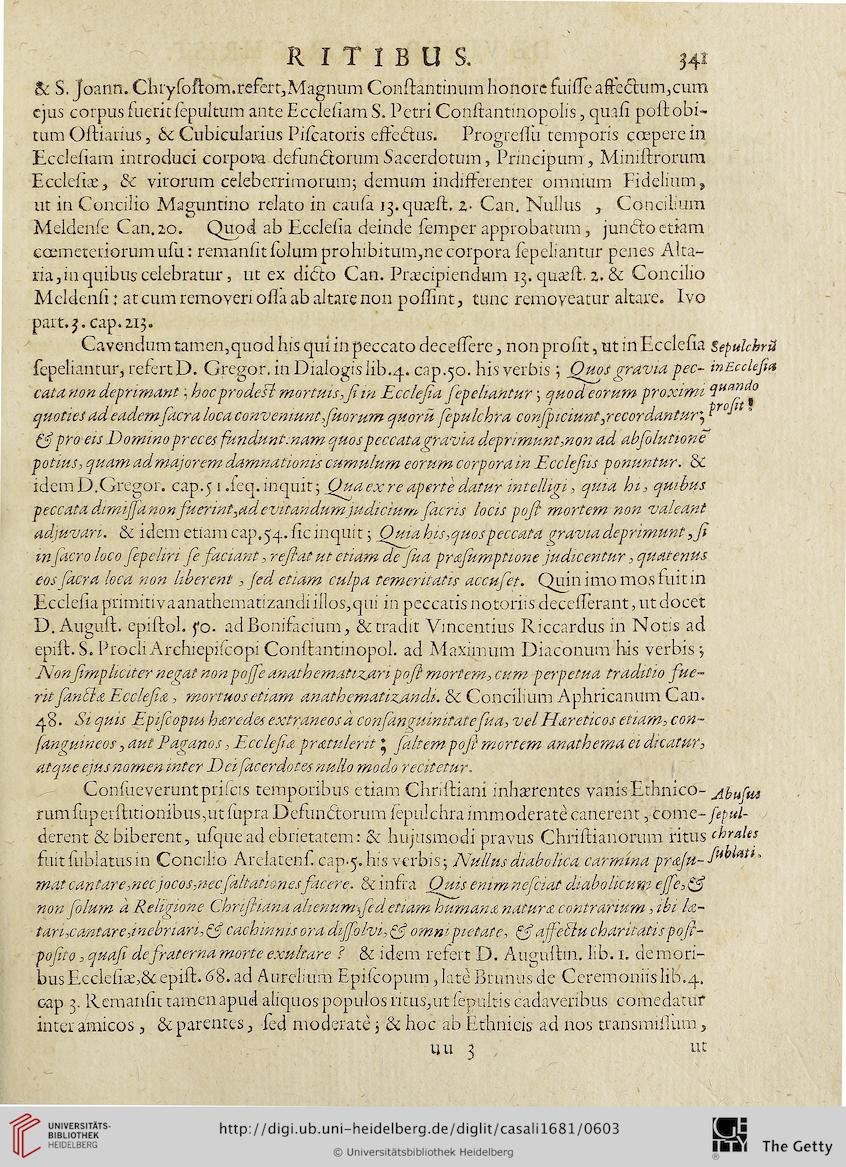 RITIBUS. 341
& S. Joann. Chryſoſtom. refert, Magnum Conſtantinum honore fuiſſe affectum, cum
ejus corpus fuerit ſepultum ante Eccleſiam S. Petri Conſtantinopolis, quaſi poſt obi-
tum Oſtiarius, & Cubicularius Piſcatoris effectus. Progreſſu temporis cœpere in
Eccleſiam introduci corpora defunctorum Sacerdotum, Principum, Miniſtrorum
Eccleſiæ, & virorum celeberrimorum; demum indifferenter omnium Fidelium,
ut in Concilio Maguntino relato in cauſa 13. quæſt. 2. Can. Nullus, Concilium
Meldenſe Can. 20. Quod ab Eccleſia deinde ſemper approbatum, juncto etiam
cœmeteriorum uſu: remanſit ſolum prohibitum, ne corpora ſepeliantur penes Alta-
ria, in quibus celebratur, ut ex dicto Can. Præcipiendum 13. quæſt. 2. & Concilio
Meldenſi: at cum removeri oſſa ab altare non poſſint, tunc removeatur altare. Ivo
part. 3. cap. 213.
Cavendum tamen, quod his qui in peccato deceſſere, non proſit, ut in Eccleſia
ſepeliantur, refert D. Gregor. in Dialogis lib. 4. cap. 50. his verbis; Quos gravia pec-
cata non deprimant; hoc prodeſt mortuis, ſi in Eccleſia ſepeliantur; quod eorum proximi
quoties ad eadem ſacra loca conveniunt, ſuorum quorū ſepulchra conſpiciunt, recordantur;
& pro eis Domino preces fundunt. nam quos peccata gravia deprimunt, non ad abſolutionē
potius, quam ad majorem damnationis cumulum eorum corpora in Eccleſiis ponuntur. &
idem D. Gregor. cap. 51. ſeq. inquit; Qua ex re apertè datur intelligi, quia hi, quibus
peccata dimiſſa non fuerint, ad evitandum judicium ſacris locis poſt mortem non valeant
adjuvari. & idem etiam cap. 54. ſic inquit; Quia his, quos peccata gravia deprimunt, ſi
in ſacro loco ſepeliri ſe faciant, reſtat ut etiam de ſua præſumptione judicentur, quatenus
eos ſacra loca non liberent, ſed etiam culpa temeritatis accuſet. Quin imo mos fuit in
Eccleſia primitiva anathematizandi illos, qui in peccatis notoriis deceſſerant, ut docet
D. Auguſt. epiſtol. 50. ad Bonifacium, & tradit Vincentius Riccardus in Notis ad
epiſt. S. Procli Archiepiſcopi Conſtantinopol. ad Maximum Diaconum his verbis;
Non ſimpliciter negat non poſſe anathematizari poſt mortem, cum perpetua traditio fue-
rit ſanctæ Eccleſiæ, mortuos etiam anathematizandi. & Concilium Aphricanum Can.
48. Si quis Epiſcopus hæredes extraneos à conſanguinitate ſua, vel Hæreticos etiam, con-
ſanguineos, aut Paganos, Eccleſiæ prætulerit; ſaltem poſt mortem anathema ei dicatur,
atque ejus nomen inter Dei ſacerdotes nullo modo recitetur.
Conſueverunt priſcis temporibus etiam Chriſtiani inhærentes vanis Ethnico-
rum ſuperſtitionibus, ut ſupra Defunctorum ſepulchra immoderatè canerent, come-
derent & biberent, uſque ad ebrietatem: & hujusmodi pravus Chriſtianorum ritus
fuit ſublatus in Concilio Arelatenſ. cap. 5. his verbis; Nullus diabolica carmina præſu-
mat cantare, nec jocos, nec ſaltationes facere. & infra Quis enim neſciat diabolicum eſſe, &
non ſolum à Religione Chriſtiana alienum, ſed etiam humanæ naturæ contrarium, ibi læ-
tari, cantare, inebriari, & cachinnis ora diſſolvi, & omni pietate, & affectu charitatis poſt-
poſito, quaſi de fraterna morte exultare? & idem refert D. Auguſtin. lib. 1. de mori-
bus Eccleſiæ, & epiſt. 68. ad Aurelium Epiſcopum, latè Brunus de Ceremoniis lib. 4.
cap 3. Remanſit tamen apud aliquos populos ritus, ut ſepultis cadaveribus comedatur
inter amicos, & parentes, ſed moderatè; & hoc ab Ethnicis ad nos transmiſſum,
uu 3 ut
Sepulchrū
in Eccleſia
quando
proſit!
Abuſus
ſepul-
chrales
ſublati.
UNIVERSITÄTS-
BIBLIOTHEK
HEIDELBERG
http://digi.ub.uni-heidelberg.de/diglit/casali1681/0603
© Universitätsbibliothek Heidelberg
GETTY
The Getty